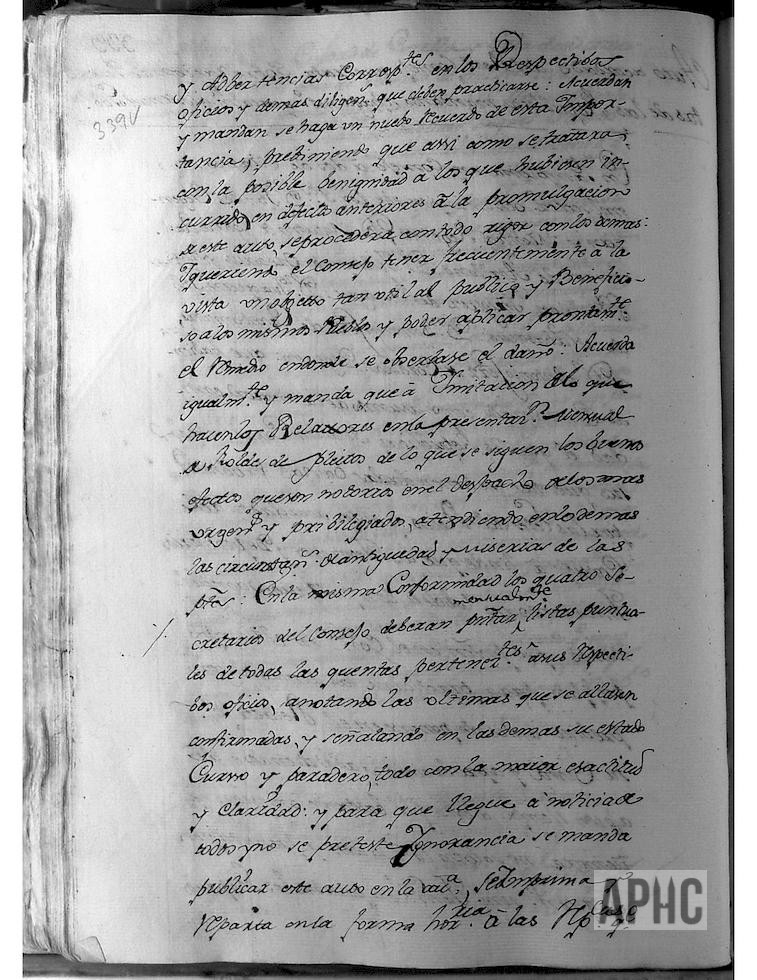 339V
y Adbertencias Corresp.tes en los Respectibos
oficios y demas diligen.s que deben practicarse: Acuerdan
y mandan se haga un nuebo Recuerdo de esta Impor-
tancia; prebiniendo que assi como se tratara
con la posible benignidad a los que hubiesen in-
currido en defecto anteriores â la promulgacion
de este auto, se procederá con todo rigor con los demas:
Y queriendo el Consejo tener frecuentemente â la
vista un objeto tan util al publico y Beneficio-
so a los mismos Pueblos y poder aplicar prontam.te
el Remedio endonde se obserbase el daño: Acuerda
igualm.te y manda que â Imitacion de lo que
hacen los Relatores en la presentaz.n mensual
de Rolde de pleitos de lo que se siguen los buenos
efectos que son notorios en el despacho de los mas
urgen.s y pribilegiados, atendiendo en lo demas
las circunstan.s de antiguedad y miserias de las
: En la misma Conformidad los quatro Se-
mensualm.te
cretarios del Consejo deberan pntar listas puntua-
les de todas las quentas pertenez.tes a sus Respecti-
bos oficios, anotando las ultimas que se allasen
confirmadas, y señalando en las demas su estado
Curso y paradero, todo con la maior exactitud
y Claridad: y para que llegue a noticia de
todos y no se preteste Ygnorancia se manda
publicar este auto en la aud.a, se Imprima y
Reparta en la forma hor.ria â las
APHC